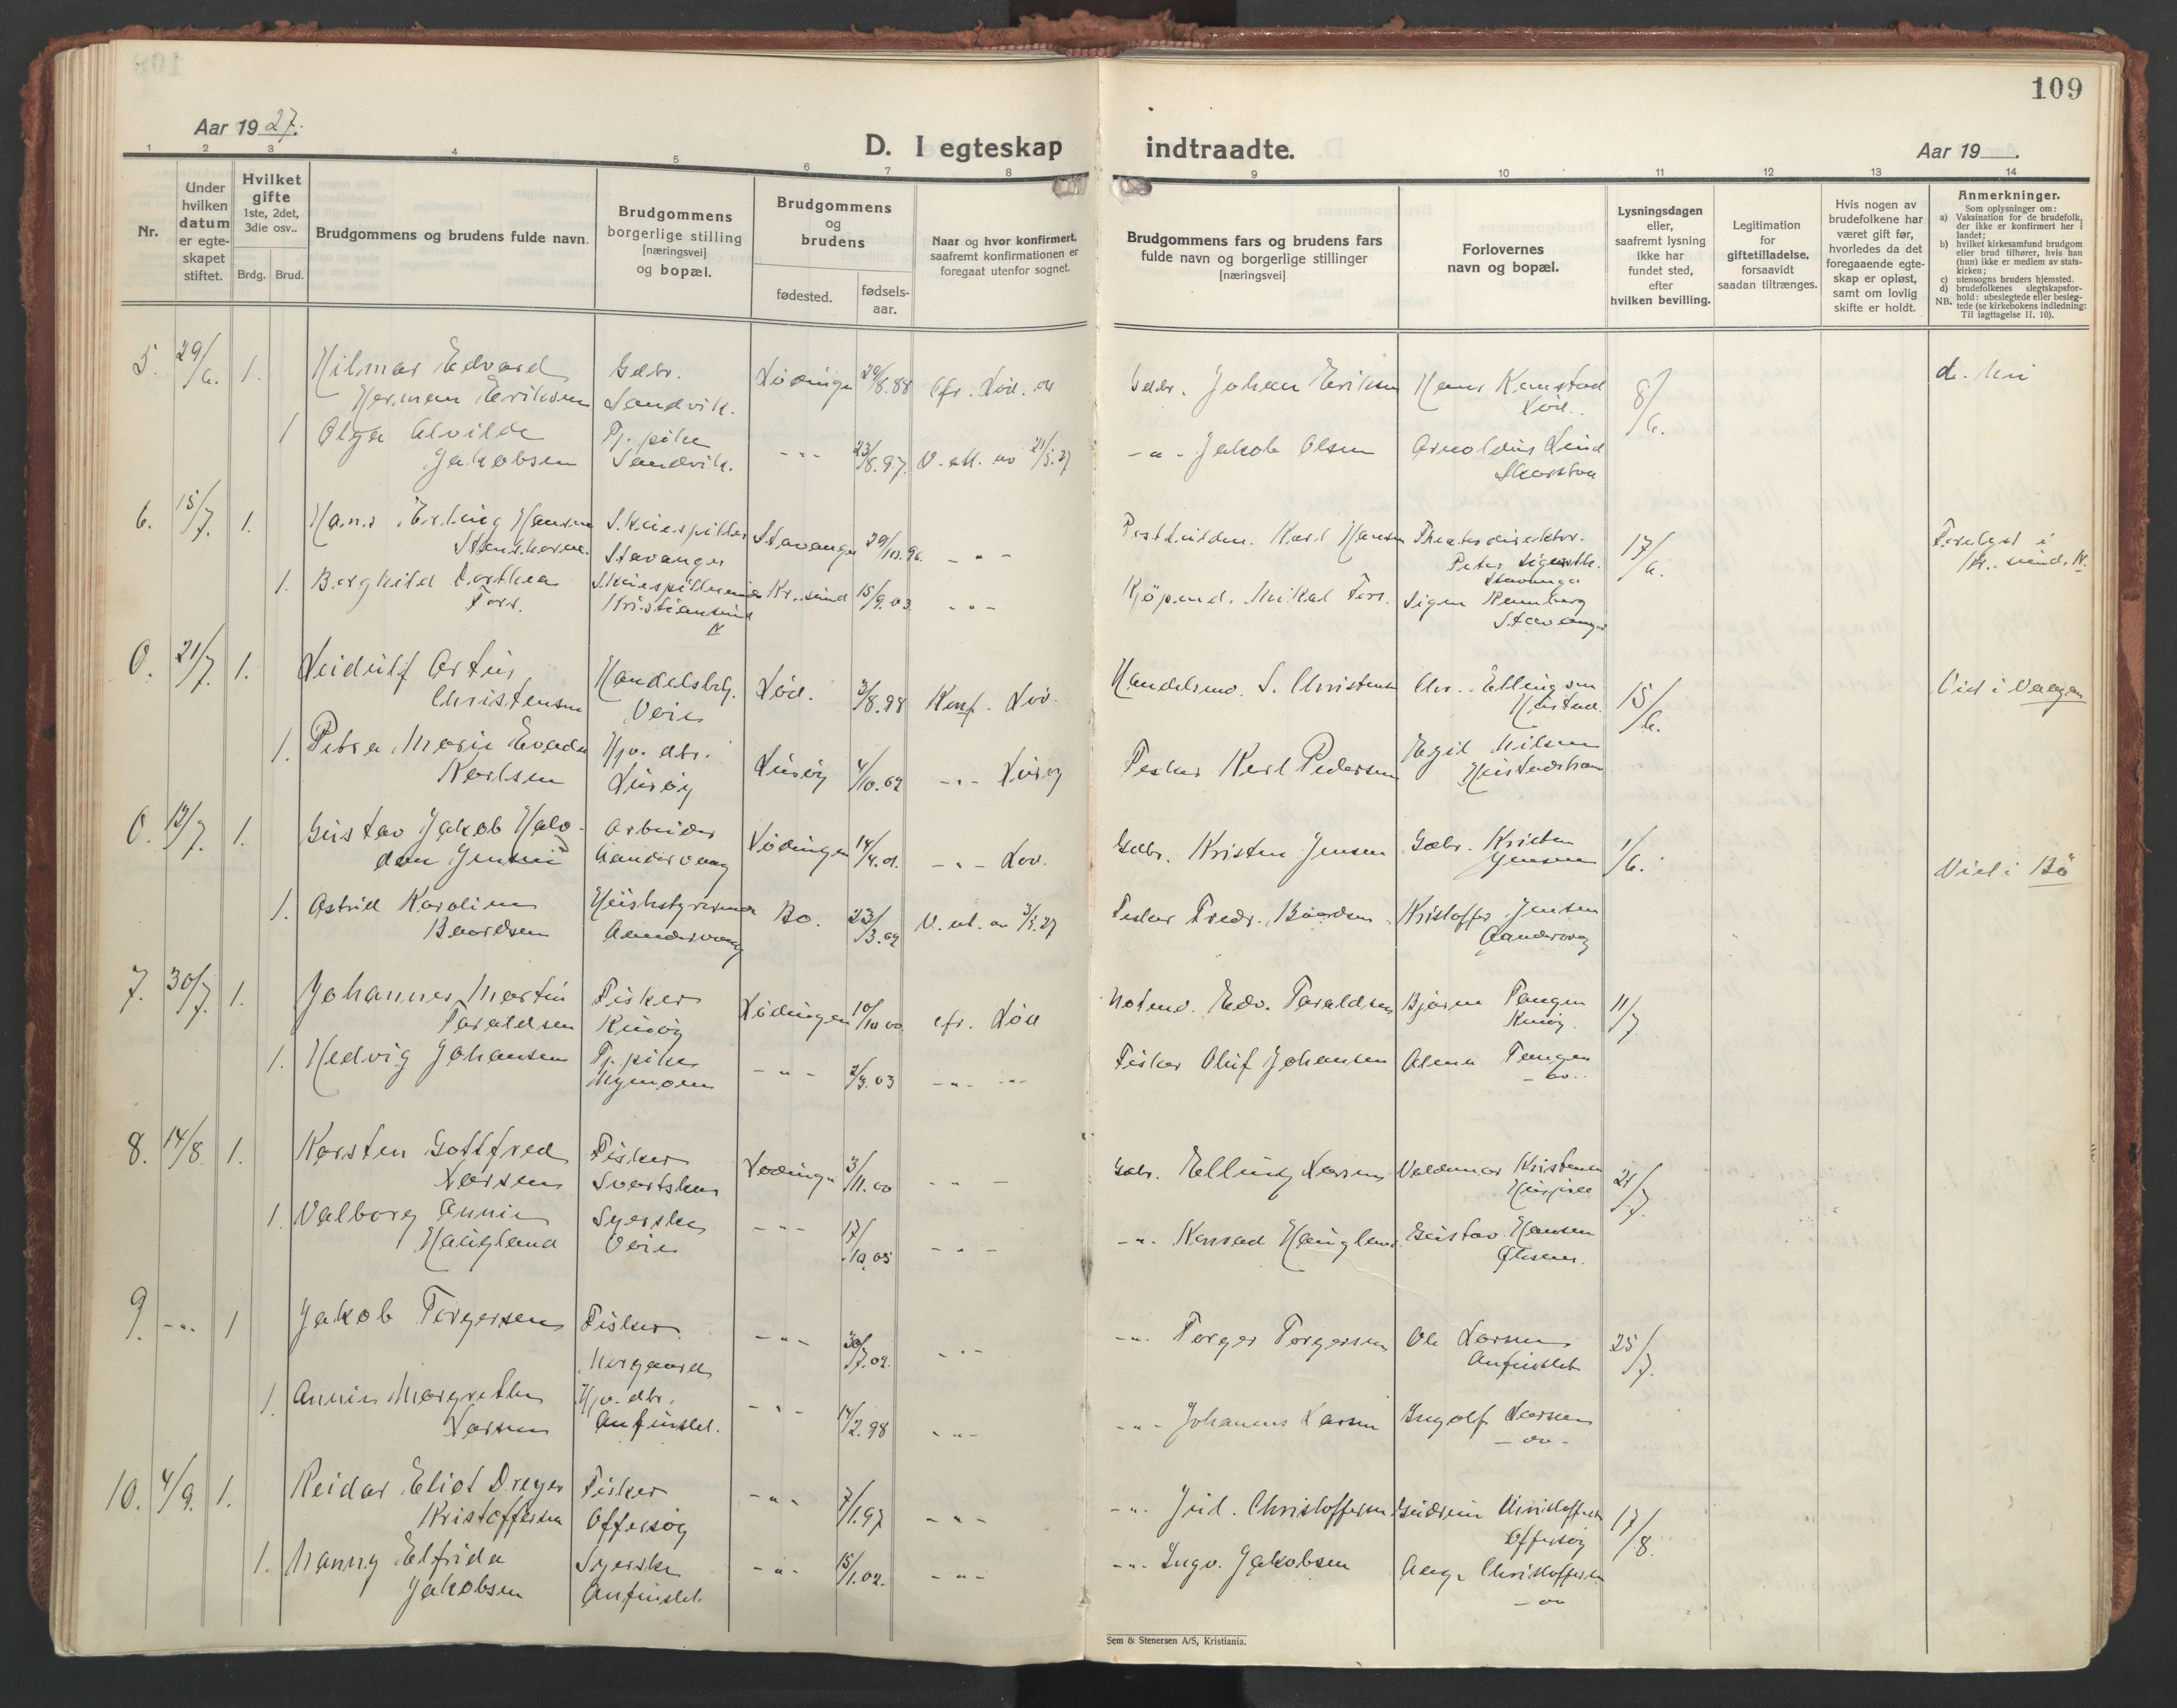 109
Aar 1927.
D. I egteskap indtraadte.
Aar 19
1 2 3 4 5 6 7 8 9 10 11 12 13 14
Nr.
Under hvilken datum er egte-skapet stiftet.
Hvilket gifte
1ste, 2det, 3die osv..
Brdg. Brud.
Brudgommens og brudens fulde navn.
Brudgommens borgerlige stilling [næringsvei] og bopæl.
Brudgommens og brudens
fødested.
fødsels-aar.
Naar og hvor konfirmert, saafremt konfirmationen er foregaat utenfor sognet.
Brudgommens fars og brudens fars fulde navn og borgerlige stillinger [næringsvei]
Forlovernes navn og bopæl.
Lysningsdagen eller, saafremt lysning ikke har fundet sted, efter hvilken bevilling.
Legitimation for giftetilladelse, forsaavidt saadan tiltrænges.
Hvis nogen av brudefolkene har været gift før, hvorledes da det foregaaende egte-skap er opløst, samt om lovlig skifte er holdt.
Anmerkninger.
Som oplysninger om:
a) Vaksination for de brudefolk, der ikke er konfirmert her i landet;
b) hvilket kirkesamfund brudgom eller brud tilhører, hvis han (hun) ikke er medlem av stats-kirken;
c) utensogns bruders hjemsted.
d) brudefolkenes slegtskapsfor-hold: ubeslegtede eller besleg-tede (se kirkebokens indledning: Til Iagttagelse II. 10).
NB.
5. 29/6. 1. Hilmar Edvard Gdbr. Lödingen 29/8.88 Cfr. Löd. Gdbr. Johan Eriksen Hans Kanstad 8/6.
Herman Eriksen Sandvik. Löd.
1 Olga Alvilde Tj.pike
Jakobsen Sandvik. -"- 23/8.97. V. att. av 21/5.27 -"- Jakob Olsen Arnoldus Lind
6. 15/7. 1. Hans Erling Hansen Skuespiller Stavanger 29/10.96 -"- Karl Hansen Theaterdirektör. 17/6.
Stavanger Peter
Stavanger
1. Borghild Dorthea Skuespillerinde Kr.sund 15/9.03. -"- Kjöpmd. Mikal
Kristiansund N Signe
Stavanger
0. 21/7. 1. Leidulf Artur Handelsbtj. Löd. 3/8.98 Konf. Löd. Handelsmd. S. Christensen Chr. Ellingsen 15/6.
Christensen Voie
1. Petra Marie Karlsen Hjv. dtr. Luröy 4/10.02 -"- Luröy Fisker Karl Pedersen Egil Nilsen
Luröy
0. 12/7. 1. Gustav Jakob Halv-dan Jensen Arbeider Lödingen 14/4.01. -"- Löd. Gdbr. Kristen Jensen Gdbr. Kristen Jensen 1/6.
Viet i Bö
1. Astrid Karoline Baardsen Husbestyrerinde Bö. 23/3.02 V. att. av 3/5.27 Fisker Fredr. Baardsen Kristoffer Jensen
7. 30/7. 1. Johannes Martin Fisker Lödingen 10/10.00 cfr. Löd Notmd. Edv. Taraldsen Bjarne Tangen 11/7
Taraldsen
1. Hedvig Johansen Tj. pike -"- 2/3.03 -"- Fisker Oluf Johansen Alma Tangen
8. 14/8. 1. Karsten Gottfred Fisker Lödingen 3/11.00 -"- Gdbr. Elling Larsen Valdemar Kristensen 21/7.
Larsen
1. Valborg Annie Syerske -"- 17/10.05 -"- -"- Konrad Haugland Gustav Hansen
Haugland Voie
9. -"- 1 Jakob Torgersen Fisker -"- 30/7.02. -"- -"- Torger Torgersen Ole Larsen 25/7.
Anfinslet
1. Annie Margrethe Hjv. dtr. -"- 14/2.98 -"- -"- Johannes Larsen Ingolf Larsen
Larsen Anfinslet.
10. 4/9. 1. Reidar Eliot Dreyer Fisker -"- 7/1.97 -"- -"- Jul. Christoffersen Gudrun Christoffersen 17/8.
Kristoffersen Offersöy Offersöy
1. Nanny Elfrida Syerske -"- 15/1.02. -"- -"- Ingv. Jakobsen Aag. Christoffersen
Jakobsen Anfinslet.
Sem & Stenersen A/S, Kristiania.